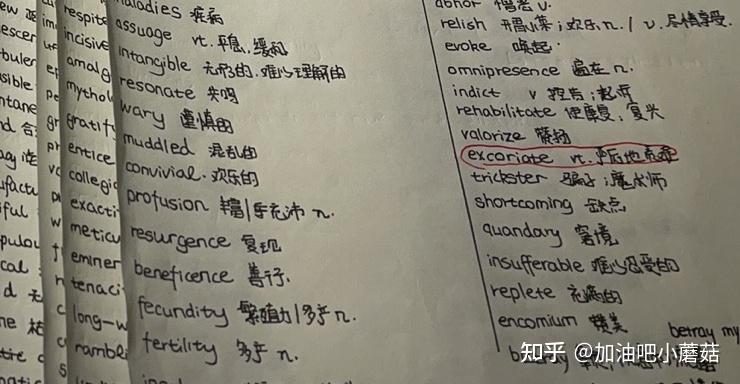 maladies 疾病
assuage vt. 平息,缓和
intangible 无形的,难以理解的
resonate 共鸣
wary 谨慎的
muddled 混乱的
convivial. 欢乐的
profusion 丰富/充沛 n.
resurgence 复现
beneficence 善行.
fecundity 繁殖力/多产 n.
fertility 多产 n.
respite
incisive
amalg
mythol
gratify
entice
collegic
exacti
meticu
eminer
tenaci
long-w
rambli
abhor 憎恶 v.
relish 开胃小菜;欢乐 n. / v. 尽情享受.
evoke 唤起
omnipresence 遍在 n.
indict v 控告;起诉
rehabilitate 使康复,复兴
valorize 赞扬
excoriate vt. 严厉地责罪
trickster 骗子;魔术师
shortcoming 缺点
quandary 窘境
insufferable 难以忍受的
replete 充满的
encomium 赞美
betray my
知乎 @加油吧小蘑菇